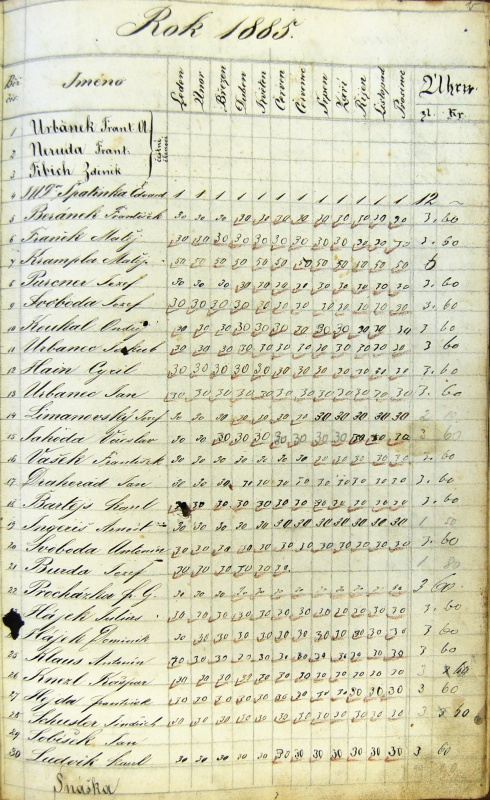 Rok 1885.
Jméno Leden Únor Březen Duben Květen Červen Července Srpen Září Říjen Listopad Prosinec Úhrn
zl. Kr.
1 Urbánek Frant. Al.
2 Neruda Frant. čestní členové
3 Fibich Zdeněk
4 MDr Špatinka Eduard 1 1 1 1 1 1 1 1 1 1 1 1 12 ~
5 Beránek František 30 30 30 30 30 30 30 30 30 30 30 30 3. 60
6 Matěj 30 30 30 30 30 30 30 30 30 30 30 30 3. 60
7 Krampla Matěj 50 50 50 50 50 50 50 50 50 50 50 50 6
8 Josef 30 30 30 30 30 30 30 30 30 30 30 30 3. 60
9 Svoboda Josef 30 30 30 30 30 30 30 30 30 30 30 30 3. 60
10 Koukal Ondřej 30 30 30 30 30 30 30 30 30 30 30 30 3 60
11 Urbanec 30 30 30 30 30 30 30 30 30 30 30 30 3 60
12 Hain Cyril 30 30 30 30 30 30 30 30 30 30 30 30 3. 60
13 Urbanec Jan 30 30 30 30 30 30 30 30 30 30 30 30 3. 60
14 Limanovský Josef 30 30 30 30 30 30 30 30 30 30 30 30
15 Václav 30 30 30 30 30 30 30 30 30 30 30 30 3 60
16 Vašek František 30 30 30 30 30 30 30 30 30 30 30 30 3. 60
17 Drahorád Jan 30 30 30 30 30 30 30 30 30 30 30 30 3. 60
18 Bartejs Karel 30 30 30 30 30 30 30 30 30 30 30 3. 60
19 Arnošt 30 30 30 30 30 30 30 30 30 30 30 30
20 Svoboda Antonín 30 30 30 30 30 30 30 30 30 30 30 30 3. 60
21 Burda Josef 30 30 30 30 30 30 1 80
22 Procházka p. G. 30 30 30 30 30 30 30 30 30 30 30 30 3 60
Hájek Julius 30 30 30 30 30 30 30 30 30 30 30 30 3. 60
Hájek Dominik 30 30 30 30 30 30 30 30 30 30 30 30 3. 60
25 Klaus Antonín 30 30 30 30 30 30 30 30 30 30 30 30 3 60
26 Knezl Kašpar 30 30 30 30 30 30 30 30 30 30 30 30 3 60
27 Hejda František 30 30 30 30 30 30 30 30 30 30 30 30 3 60
28 Schuster Jindřich 30 30 30 30 30 30 30 30 30 30 30 30 3 60
29 Sobíšek Jan
30 Ludvík Karel 30 30 30 30 30 30 30 30 30 30 30 30 3 60
Snáška